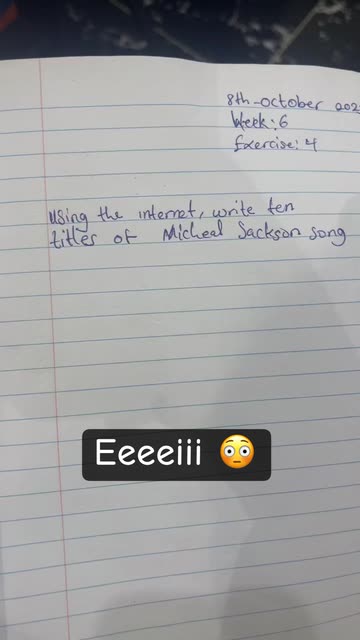 8th-october 202
Week: 6
Exercise: 4
using the internet, write ten
titles of Micheal Sackson song
Eeeeiii 😳